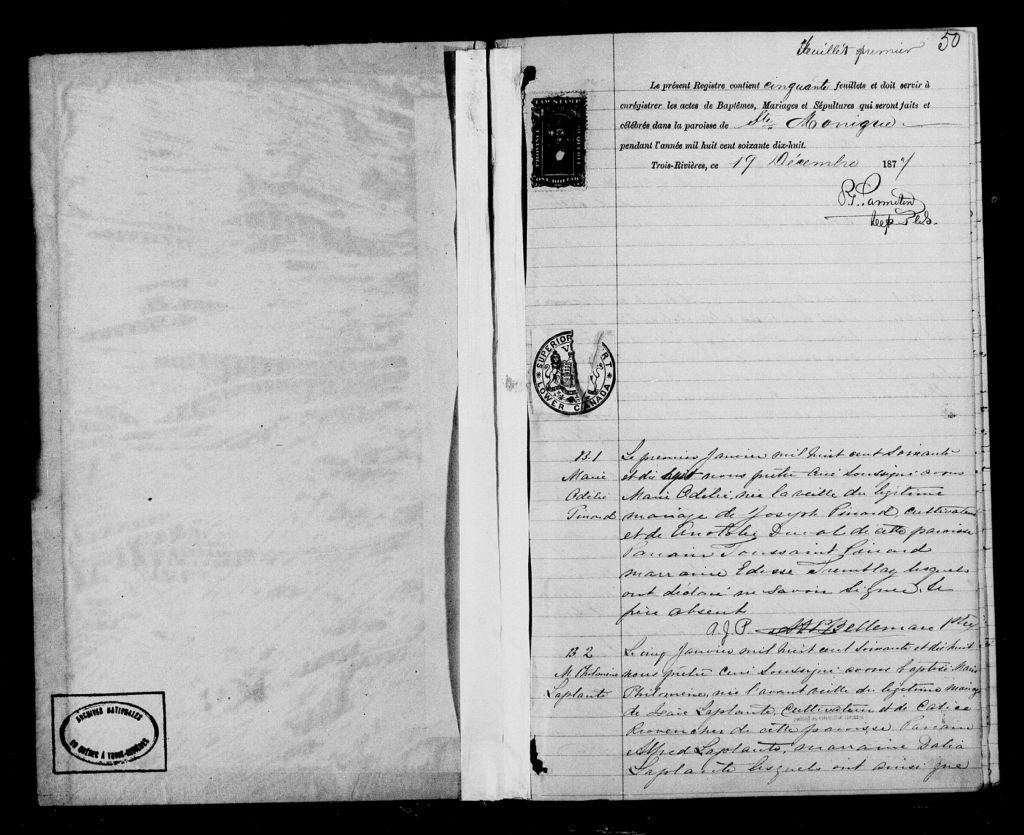 Feuillet premier
50
Le présent Registre contient cinquante feuillets et doit servir à
enrégistrer les actes de Baptêmes, Mariages et Sépultures qui seront faits et
célébrés dans la paroisse de Ste Monique
pendant l'année mil huit cent soixante dix-huit.
Trois-Rivières, ce 19 Décembre 1877
LAW STAMP
ONE DOLLAR
SUPERIOR
LOWER CANADA
B.1
Marie
Odélie
Pinard
Le premier Janvier mil huit cent soixante
et dix huit nous prêtre curé soussigné avons
Marie Odélie, née la veille du légitime
mariage de Joseph Pinard cultivateur
et de Duval de cette paroisse
Parrain Toussaint Pinard
marraine Tremblay lesquels
ont déclaré ne savoir signer. Le
père absent
A.J.P. Bellemare Ptre
B 2
M. Philomène
Laplante
Le cinq Janvier mil huit cent soixante et dix huit
nous prêtre curé soussigné avons baptisé Marie
Philomène, née l'avant veille du légitime mariage
de Isaïe Laplante, Cultivateur et de
Provencher de cette paroisse. Parrain
Alfred Laplante, marraine Dalia
Laplante lesquels ont ainsi que
ARCHIVES NATIONALES
DU QUÉBEC À TROIS-RIVIÈRES